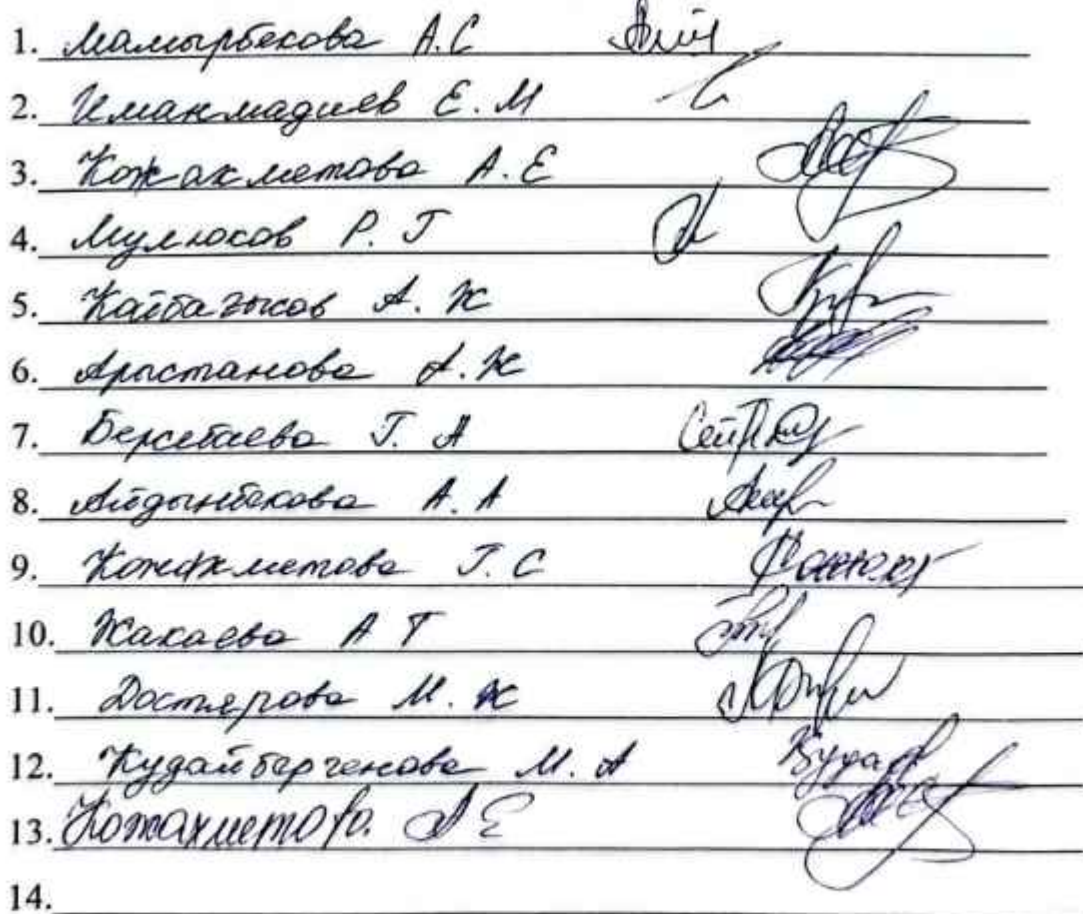 1. Мамырбекова А.С
2. Иманмадиев Е.М
3. Кожахметова А.Е
4. Мулюков Р.Г
5. А.К
6. Арыстанова А.К
7. Берсебаева Г.А
8. Айдынбекова А.А
9. Кожахметова Г.С
10. Жакаева А Т
11. Достярова М.К
12. Кудайбергенова М.А
13. Кожахметова А Е
14.